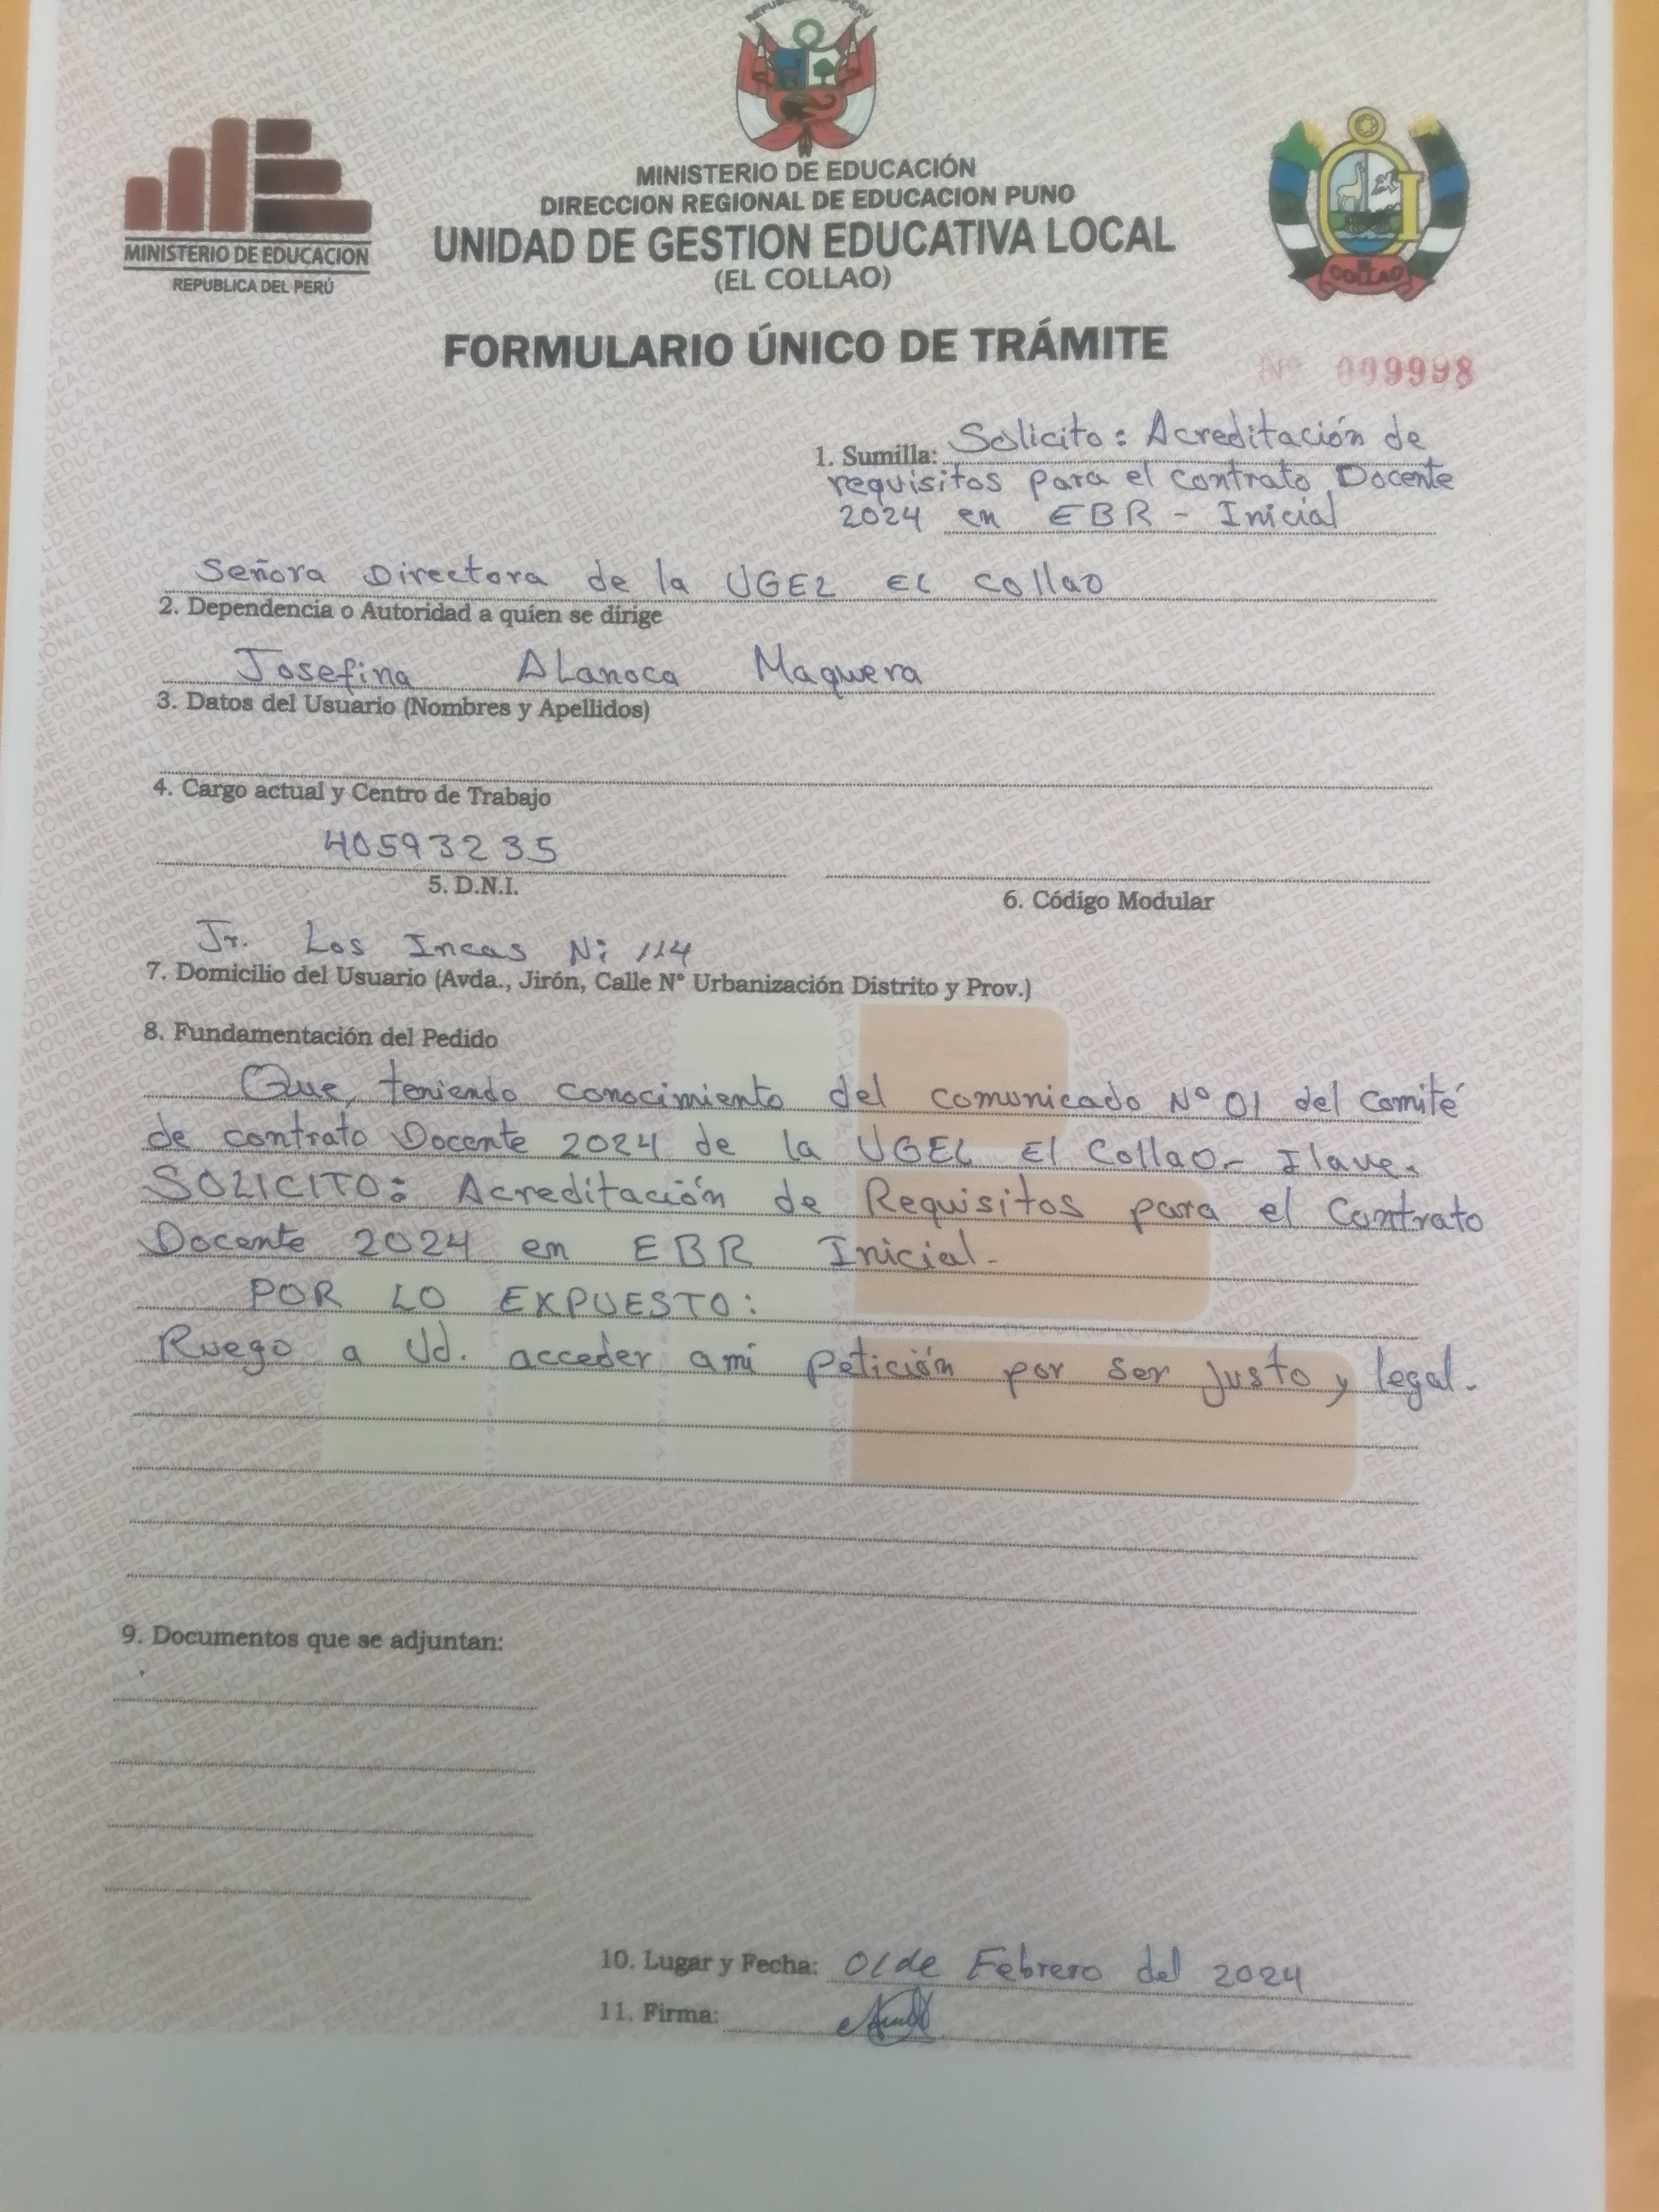 REPUBLICA DEL PERU
MINISTERIO DE EDUCACIÓN
DIRECCION REGIONAL DE EDUCACION PUNO
UNIDAD DE GESTION EDUCATIVA LOCAL
(EL COLLAO)
MINISTERIO DE EDUCACION
REPUBLICA DEL PERÚ
COLLAO
FORMULARIO ÚNICO DE TRÁMITE
Nº 009998
1. Sumilla: Solicito: Acreditación de
requisitos para el contrato Docente
2024 en EBR - Inicial
Señora Directora de la UGEL EL Collao
2. Dependencia o Autoridad a quien se dirige
Josefina ALanoca Maquera
3. Datos del Usuario (Nombres y Apellidos)
4. Cargo actual y Centro de Trabajo
40593235
5. D.N.I.
6. Código Modular
Jr. Los Incas N: 114
7. Domicilio del Usuario (Avda., Jirón, Calle N° Urbanización Distrito y Prov.)
8. Fundamentación del Pedido
Que, teniendo conocimiento del comunicado Nº 01 del Comité
de contrato Docente 2024 de la UGEL El Collao - Ilave.
SOLICITO: Acreditación de Requisitos para el Contrato
Docente 2024 en EBR Inicial.
POR LO EXPUESTO:
Ruego a Ud. acceder a mi petición por ser justo y legal.
9. Documentos que se adjuntan:
10. Lugar y Fecha: 01 de Febrero del 2024
11. Firma: